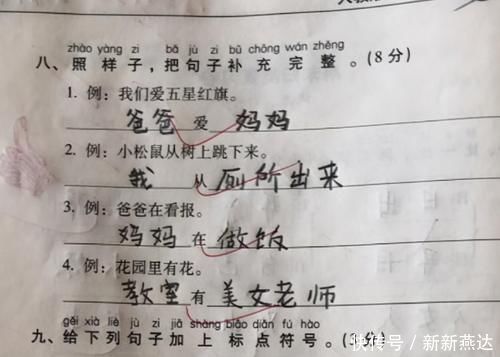 zhào yàng zi bǎ jù zi bǔ chōng wán zhěng
八、照样子,把句子补充完整。(8分)
1. 例:我们爱五星红旗。
爸爸 爱 妈妈
2. 例:小松鼠从树上跳下来。
我 从 厕所出来
3. 例:爸爸在看报。
妈妈 在 做饭
4. 例:花园里有花。
教室 有 美女老师
gěi xià liè jù zi jiā shàng biāo diǎn fú hào
九、给下列句子加上标点符号。(3分)
快传号/新新燕达